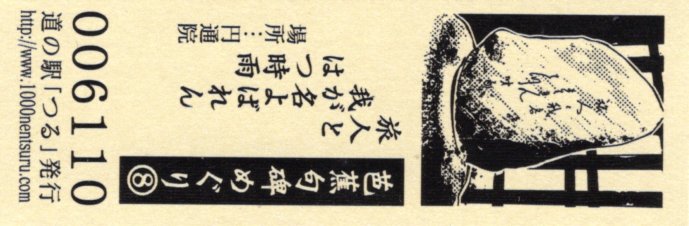 芭蕉句碑めぐり⑧
旅人と
我が名よばれん
はつ時雨
場所…円通院
006110
道の駅「つる」発行
http://www.1000nentsuru.com